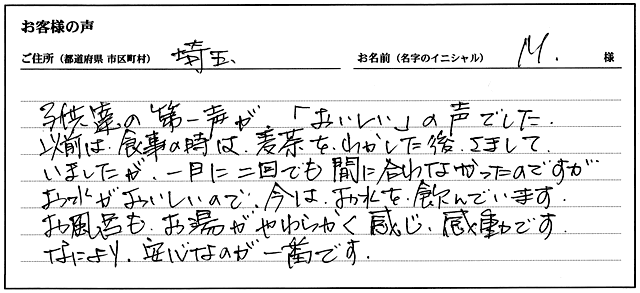 お客様の声
ご住所（都道府県 市区町村） 埼玉、 お名前（名字のイニシャル） M. 様
子供達の第一声が「おいしい」の声でした.
以前は.食事の時は.麦茶をわかした後.さまして.
いましたが.一日に二回でも間に合わなかったのですが
お水がおいしいので.今は.お水を.飲んでいます.
お風呂も.お湯がやわらかく感じ.感動です.
なにより.安心なのが一番です.